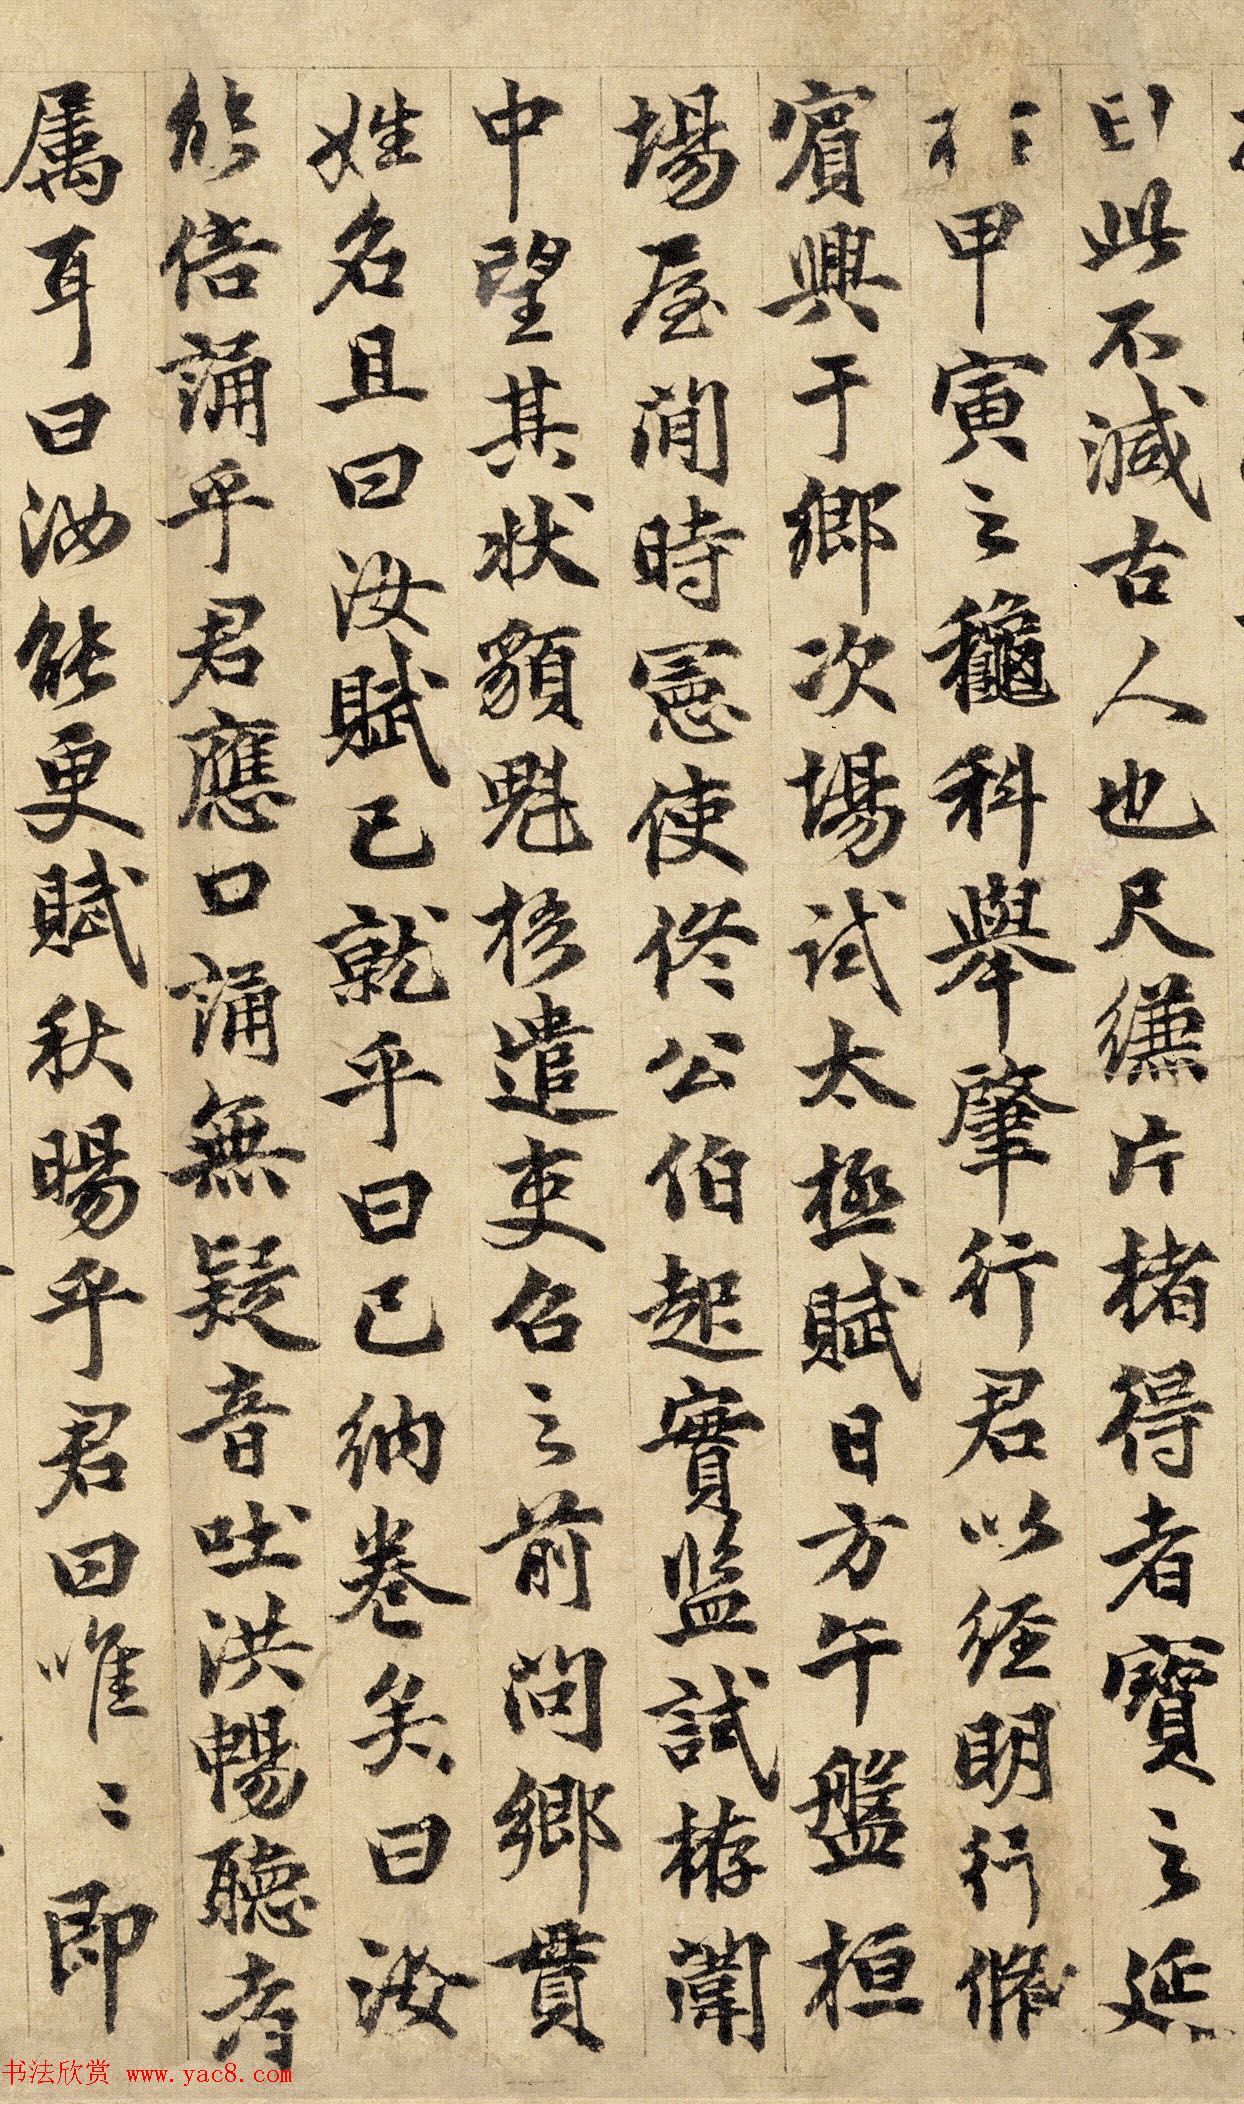 此不減古人也尺縑片楮得者寶之延
甲寅之龝科舉肇行君以經明行脩
賔興于鄉次場試太極賦日方午盤桓
場屋間時憲使佟公伯起實監試栫闈
中望其狀貌魁梧遣吏召之前問鄉貫
姓名且曰汝賦已就乎曰已納卷矣曰汝
能倍誦乎君應口誦無疑音吐洪暢聽者
属耳曰汝能更賦秋暘乎君曰唯〻即
书法欣赏 www.yac8.com